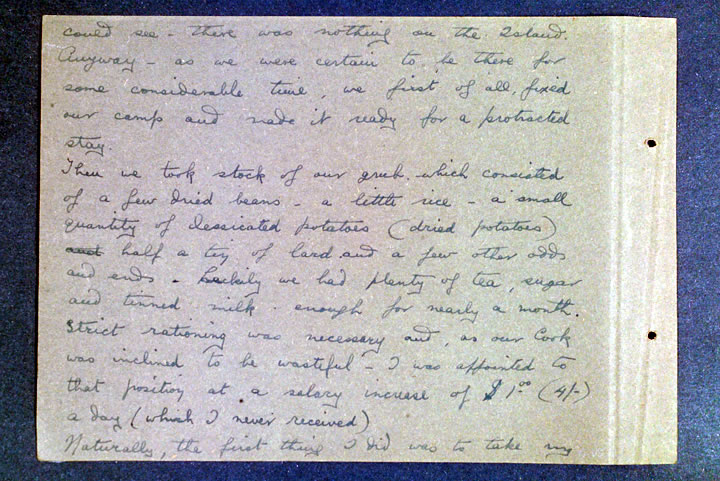 could see - there was nothing on the Island.
Anyway - as we were certain to be there for
some considerable time, we first of all, fixed
our camp and made it ready for a protracted
stay.
Then we took stock of our grub. which consisted
of a few dried beans - a little rice - a small
quantity of dessicated potatoes (dried potatoes)
and half a tin of lard and a few other odds
and ends - Luckily we had plenty of tea, sugar
and tinned milk - enough for nearly a month.
Strict rationing was necessary and, as our Cook
was inclined to be wasteful - I was appointed to
that position at a salary increase of $1.00 (4/-)
a day (which I never received)
Naturally, the first thing I did was to take my